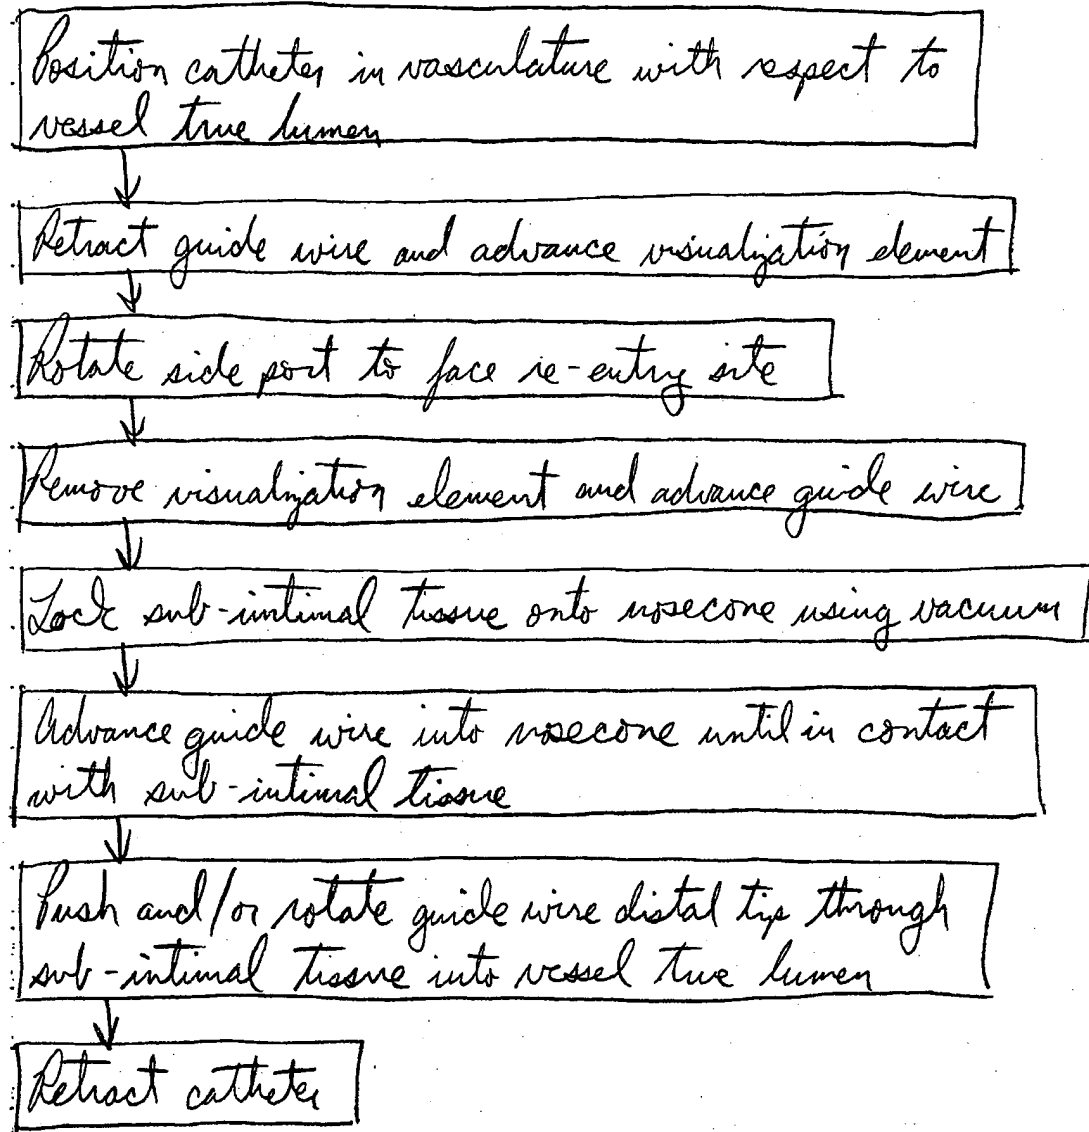 Position catheter in vasculature with respect to
vessel true lumen
Retract guide wire and advance visualization element
Rotate side port to face re-entry site
Remove visualization element and advance guide wire
Lock sub-intimal tissue onto nosecone using vacuum
Advance guide wire into nosecone until in contact
with sub-intimal tissue
Push and/or rotate guide wire distal tip through
sub-intimal tissue into vessel true lumen
Retract catheter